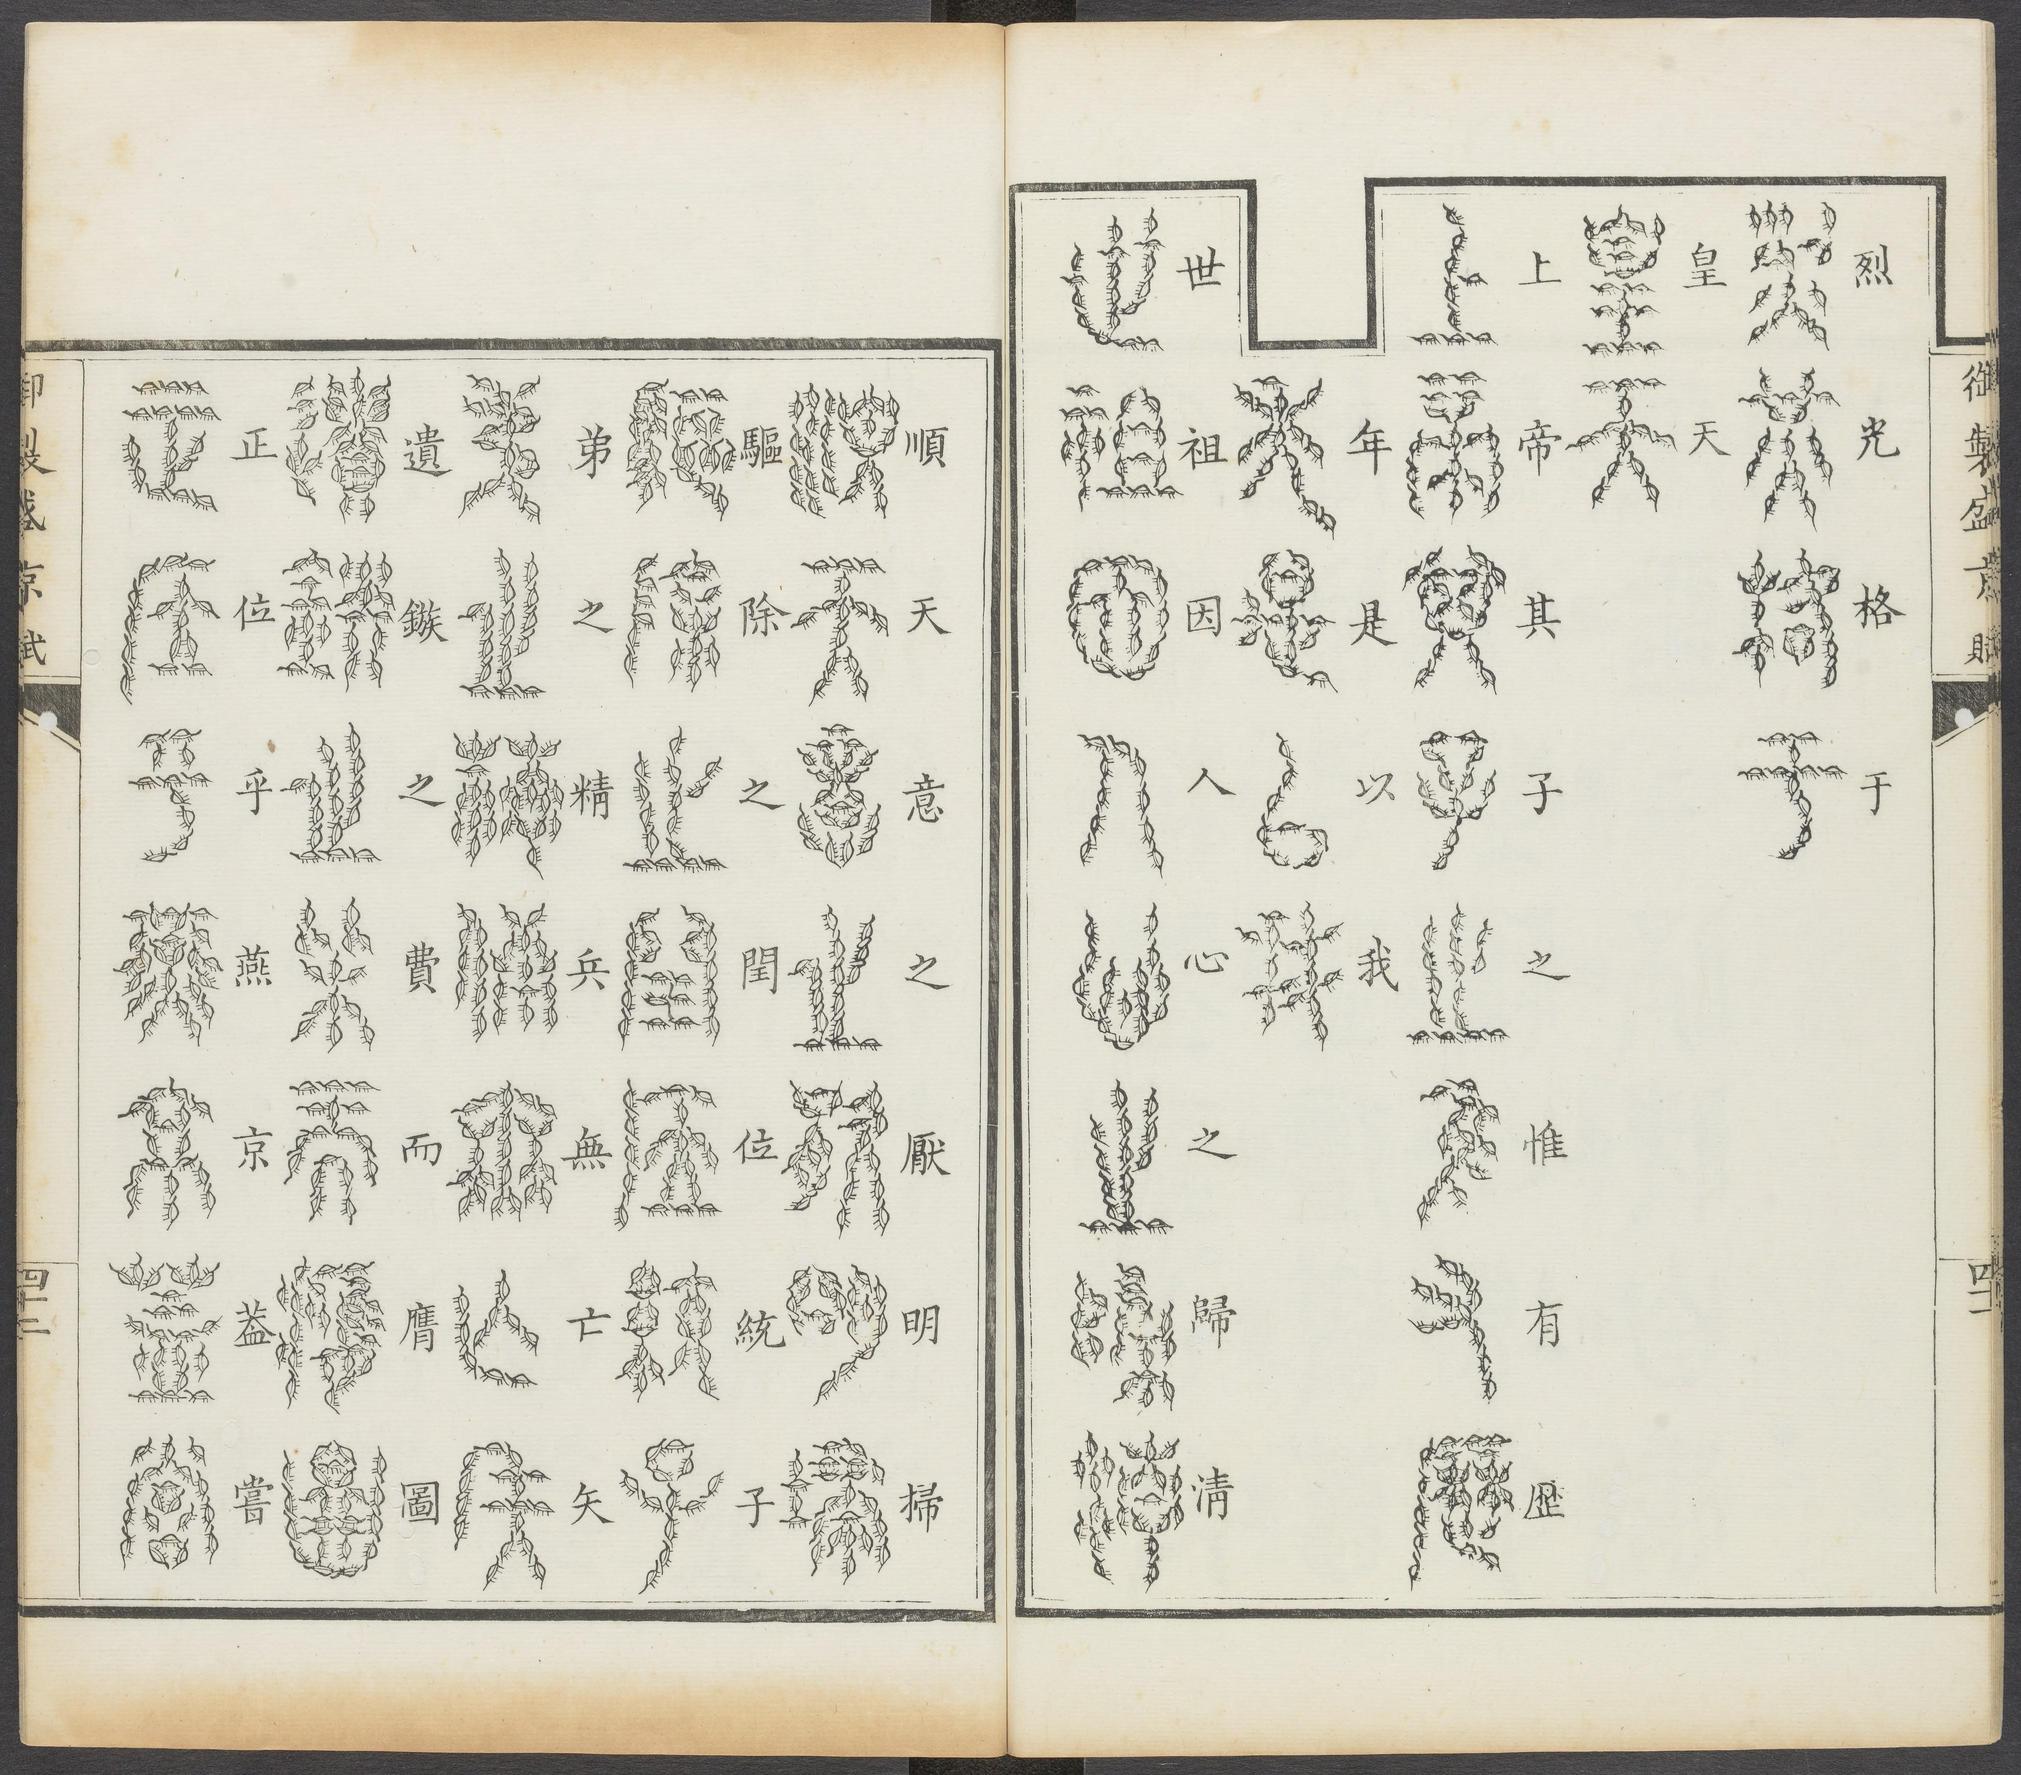 御製盛京賦
四十一
烈光格于
皇天
上帝其子之惟有歷
年是以我
世祖因人心之歸清
順天意之厭明掃
驅除之閏位統子
弟之精兵無亡矢
遺鏃之費而膺圖
正位乎燕京蓋嘗
御製盛京賦
四十二